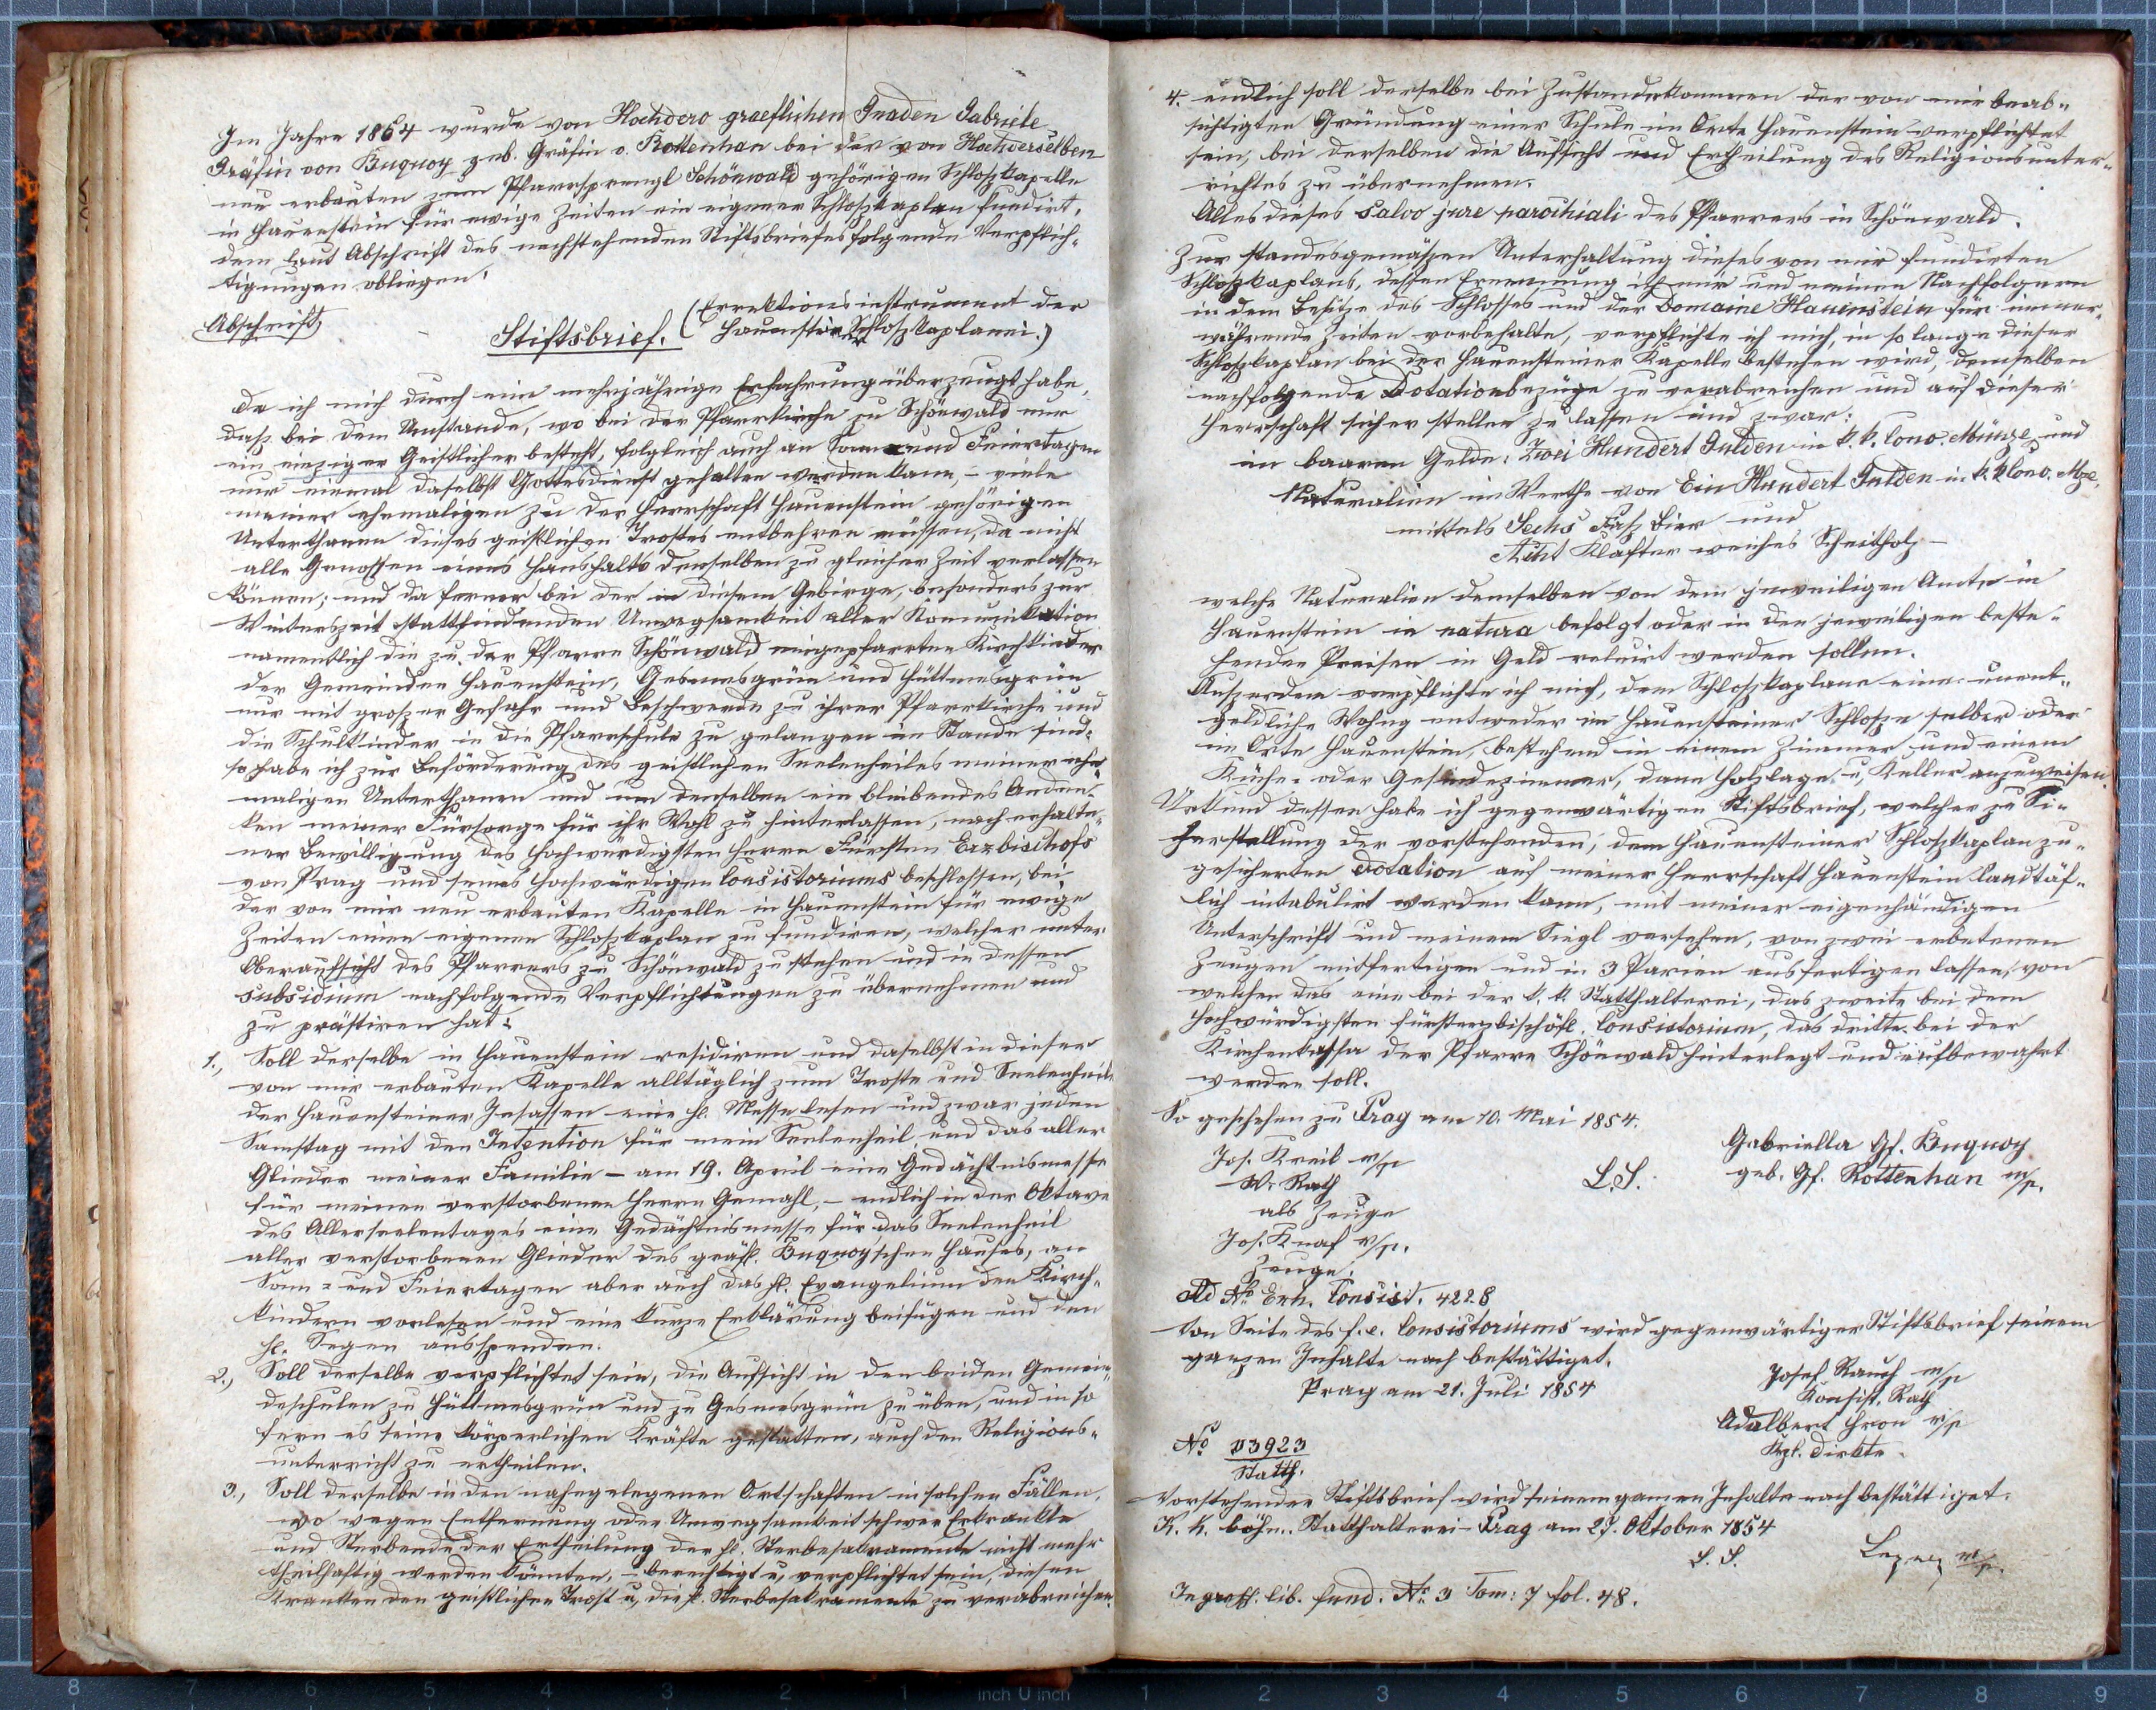 Im Jahre 1864 wurde von Hochdero graeflichen Gnaden Gabriele
Gräfin von Buquoy geb. Gräfin v. Rottenhan bei der von Hochderselben
neu erbauten zum Pfarrsprengl Schönwald gehörigen Schloßkapelle
in Hauenstein für ewige Zeiten ein eigener Schloßkaplan fundirt,
dem laut Abschrift des nachstehenden Stiftsbriefes folgende Verpflich-
tigungen obliegen:
Abschrift
Stiftsbrief. (Errektionsinstrument der
Hauensteiner Schloßkaplanei.)
Da ich mich durch eine mehrjährige Erfahrung überzeugt habe,
daß bei dem Umstande, wo bei der Pfarrkirche zu Schönwald nur
ein einziger Geistlicher besteht, folgleich auch an Sonn- und Feiertagen
nur einmal daselbst Gottesdienst gehalten werden kann, – viele
meiner ehemaligen zu der Herrschaft Hauenstein gehörigen
Unterthanen dieses geistlichen Trostes entbehren müssen, da nicht
alle Genossen eines Haushalts denselben zu gleicher Zeit verlassen
können; und da ferner bei der in diesem Gebirge, besonders zur
Winterszeit stattfindenden Unwegsamkeit aller Komunikation
namentlich die zu der Pfarre Schönwald eingepfarrten Kirchkinder
der Gemeinden Hauenstein, Gesmesgrün und Hüttmesgrün
nur mit großer Gefahr und Beschwerde zu ihrer Pfarrkirche und
die Schulkinder in die Pfarrschule zu gelangen im Stande sind:
so habe ich zur Beförderung des geistlichen Seelenheiles meiner ehe-
maligen Unterthanen und um denselben ein bleibendes Anden-
ken meiner Fürsorge für ihr Wohl zu hinterlassen, nach erhalte-
ner Bewilligung des hochwürdigsten Herrn Fürsten Erzbischofs
von Prag und seines hochwürdigen Consistoriums beschlossen, bei
der von mir neu erbauten Kapelle in Hauenstein für ewige
Zeiten einen eigenen Schloßkaplan zu fundiren, welcher unter
Oberaufsicht des Pfarrers zu Schönwald zu stehen und in dessen
subsidium nachfolgende Verpflichtungen zu übernehmen und
zu prästiren hat:
1., Soll derselbe in Hauenstein residiren und daselbst in dieser
von mir erbauten Kapelle alltäglich zum Troste und Seelenheile
der Hauensteiner Insassen eine hl. Messe lesen und zwar jeden
Samstag mit den Intention für mein Seelenheil und das aller
Glieder meiner Familie – am 19. April eine Gedächtnismesse
für meinen verstorbenen Herrn Gemahl, – endlich in der Oktave
des Allerseelentages eine Gedächtnismesse für das Seelenheil
aller verstorbenen Glieder des gräfl. Buquoy'schen Hauses, an
Sonn- und Feiertagen aber auch das hl. Evangelium den Kirch-
kindern vorlesen und eine kurze Erklärung beifügen und den
hl. Segen ausspenden.
2., Soll derselbe verpflichtet sein, die Aufsicht in den beiden Gemein-
deschulen zu Hüttmesgrün und zu Gesmesgrün zu üben, und in so
fern es seine körperlichen Kräfte gestatten, auch den Religions-
unterricht zu ertheilen.
3., Soll derselbe in den nahegelegenen Ortschaften in solchen Fällen,
wo wegen Entfernung oder Unwegsamkeit schwer Erkrankte
und Sterbende der Ertheilung der hl. Sterbesakramente nicht mehr
theilhaftig werden könnten, – berechtigt u, verpflichtet sein, diesen
Kranken den geistlichen Trost u, die hl. Sterbesakramente zu verabreichen.
4. endlich soll derselbe bei Zustandekommen der von mir beab-
sichtigten Gründung einer Schule im Orte Hauenstein verpflichtet
sein, bei derselben die Aufsicht und Ertheilung des Religionsunter-
richtes zu übernehmen.
Alles dieses salvo jure parochiali des Pfarrers in Schönwald.
Zur standesgemäßen Unterhaltung dieses von mir fundirten
Schloßkaplans, dessen Ernennung ich mir und meinen Nachfolgern
in dem Besitze des Schlosses und der Domaine Hauenstein für immer-
währende Zeiten vorbehalte, verpflichte ich mich, in so lange dieser
Schloßkaplan bei der Hauensteiner Kapelle bestehen wird, demselben
nachfolgende Dotationbezüge zu verabreichen und auf dieser
Herrschaft sicher stellen zu lassen und zwar:
im baaren Gelde: Zwei Hundert Gulden in k. k. Conv. Münze und
Naturalien im Werthe von Ein Hundert Gulden in k. k Conv. Mze.
mittels Sechs Faß Bier und
Acht Klafter weiches Scheitholz –
welche Naturalien demselben von dem jeweiligen Amte in
Hauenstein in natura befolgt oder in den jeweiligen beste-
henden Preisen in Geld reluirt werden sollen.
Außerdem verpflichte ich mich, dem Schloßkaplane eine unent-
geldliche Wohng entweder im Hauensteiner Schloße selber oder
im Orte Hauenstein, bestehend in einem Zimmer und einem
Küche- oder Gesindezimmer, dann Holzlage u, Keller anzuweisen.
Urkund dessen habe ich gegenwärtigen Stiftsbrief, welcher zu Si-
cherstellung der vorstehenden, dem Hauensteiner Schloßkaplan zu-
gesicherten Dotation auf meiner Herrschaft Hauenstein landtäf-
lich intabulirt werden kann, mit meiner eigenhändigen
Unterschrift und meinem Siegl versehen, von zwei erbetenen
Zeugen mitfertigen und in 3 Parien ausfertigen lassen, von
welchen das eine bei der k. k. Statthalterei, das zweite bei dem
hochwürdigsten fürsterzbischöfl. Consistorium, das dritte bei der
Kirchenkassa der Pfarre Schönwald hinterlegt und aufbewahrt
werden soll.
So geschehen zu Prag am 10. Mai 1854.
Jos. Kreil m/p
W. Rath
als Zeuge
Jos. Knaf m/p.
Zeuge.
L.S.
Gabriella Gf. Buquoy
geb. Gf. Rottenhan m/p.
Ad No Exh. Consist. 4228
Von Seite des f. e. Consistoriums wird gegenwärtiger Stiftsbrief seinem
ganzen Inhalte nach bestättiget.
Prag am 21. Juli 1854
Josef Rauch m/p
Konsist. Rath
Adalbert Hron m/p
Kzl. Direkte
No 23923
Statth.
Vorstehender Stiftsbrief wird seinem ganzen Inhalte nach bestättiget.
K. k. böhm. Statthalterei – Prag am 27. Oktober 1854
L. S.
m/p.
Ingross. lib. fund. No 3 Tom: 7 fol. 48.
8 7 6 5 4 3 2 1 inch U inch 1 2 3 4 5 6 7 8 9